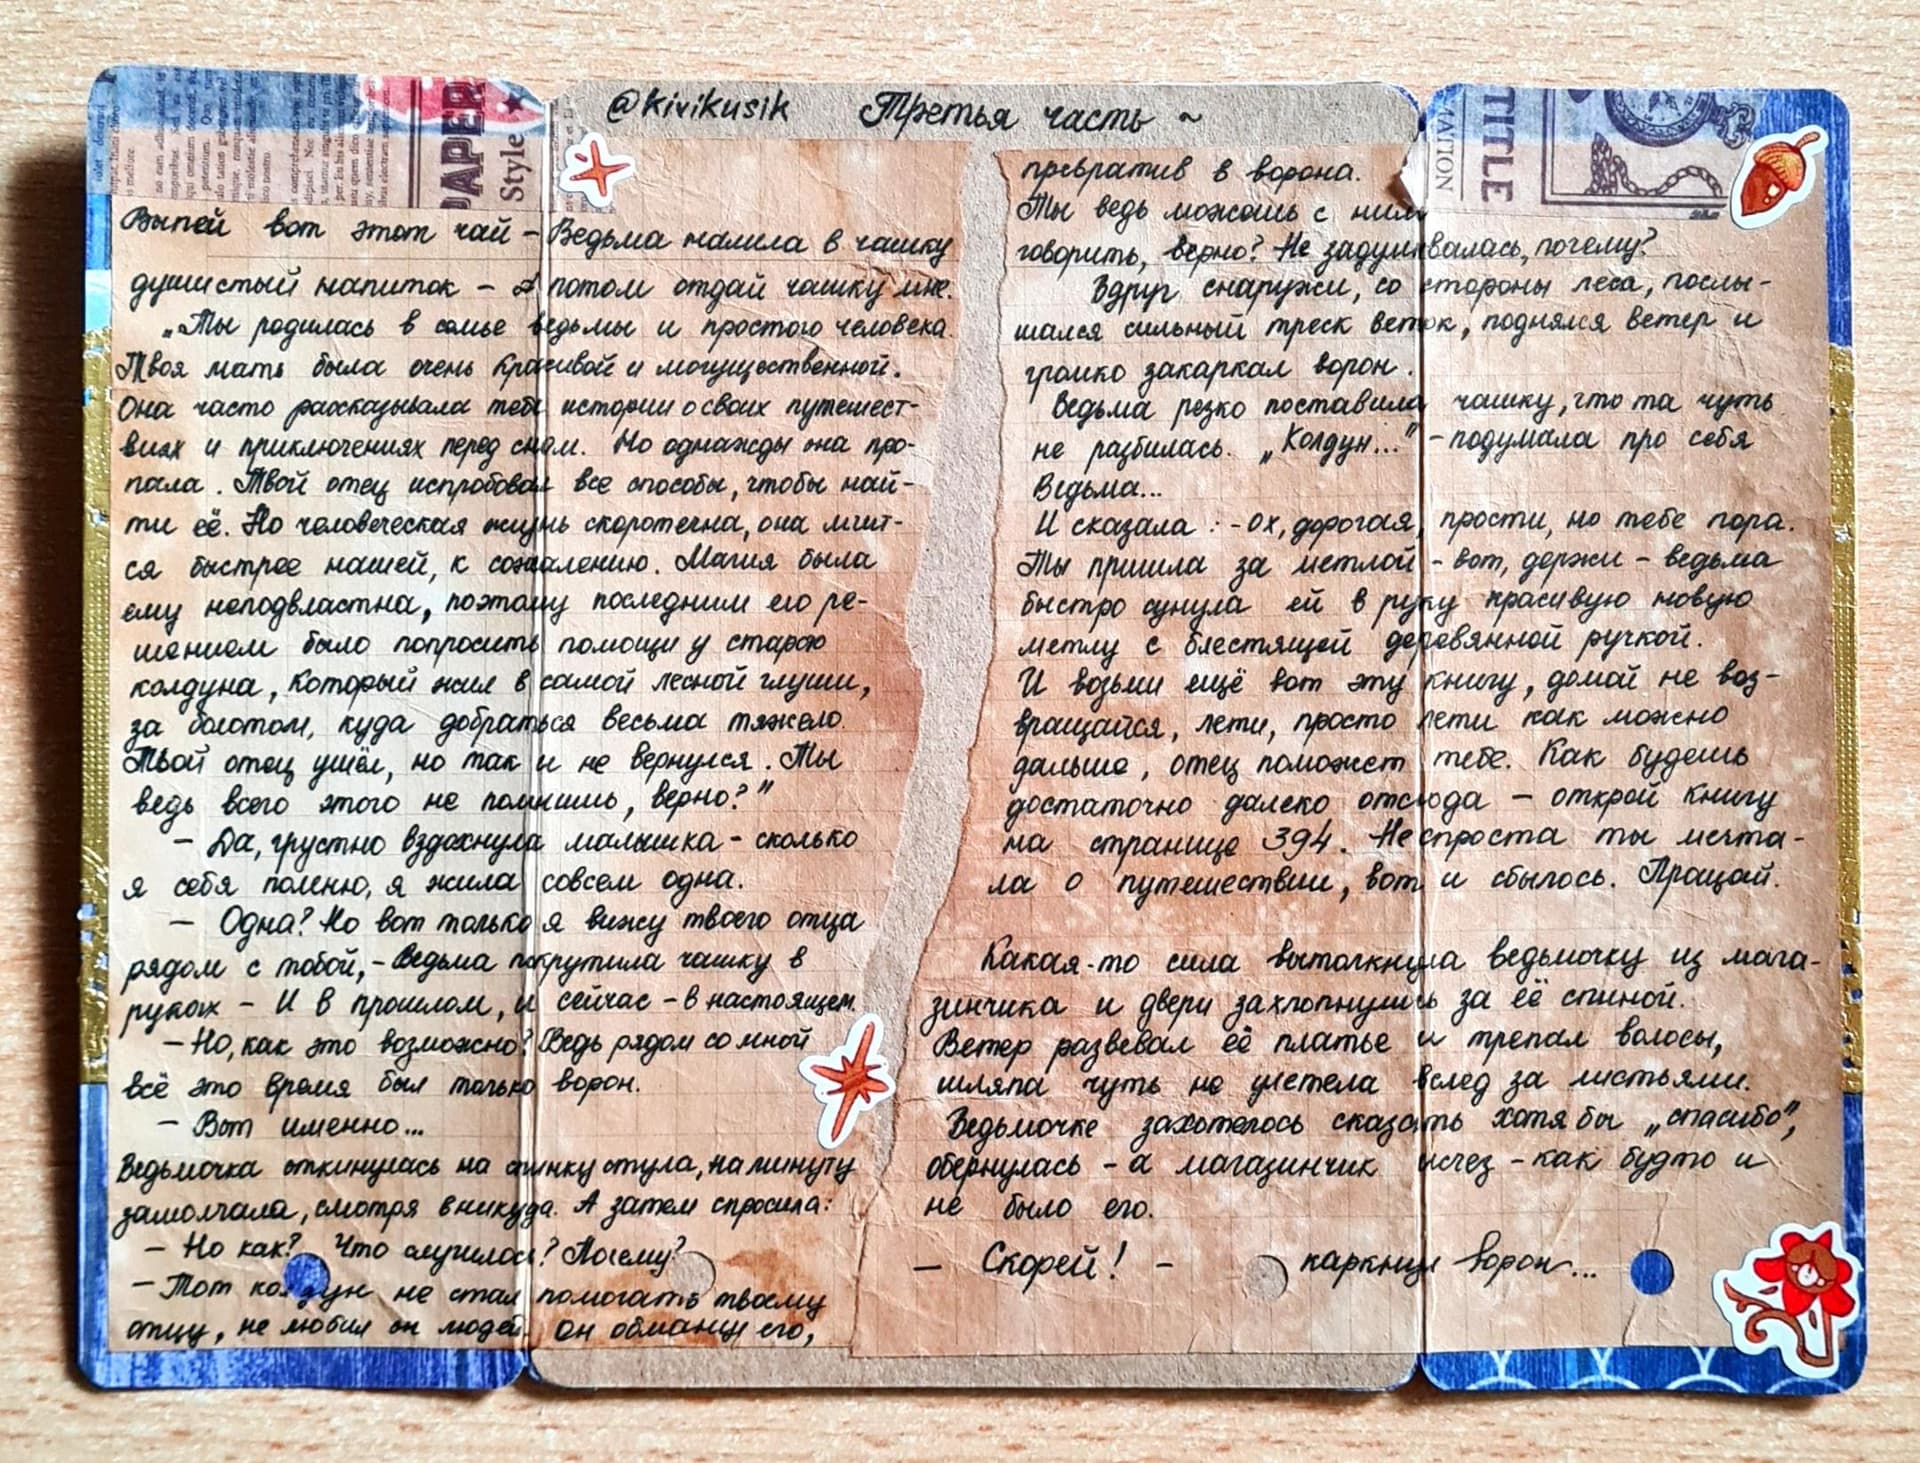 @kivikusik Третья часть ~
PAPER
Style
TITLE
Выпей вот этот чай – Ведьма налила в чашку
душистый напиток – А потом отдай чашку мне.
„Ты родилась в семье ведьмы и простого человека.
Твоя мать была очень красивой и могущественной.
Она часто рассказывала тебе истории о своих путешест-
виях и приключениях перед сном. Но однажды она про-
пала. Твой отец испробовал все способы, чтобы най-
ти её. Но человеческая жизнь скоротечна, она мчит-
ся быстрее нашей, к сожалению. Магия была
ему неподвластна, поэтому последним его ре-
шением было попросить помощи у старого
колдуна, который жил в самой лесной глуши,
за болотом, куда добраться весьма тяжело.
Твой отец ушёл, но так и не вернулся. Ты
ведь всего этого не помнишь, верно?"
– Да, грустно вздохнула малышка – сколько
я себя помню, я жила совсем одна.
– Одна? Но вот только я вижу твоего отца
рядом с тобой, – Ведьма покрутила чашку в
руках – И в прошлом, и сейчас – в настоящем.
– Но, как это возможно? Ведь рядом со мной
всё это время был только ворон.
– Вот именно...
Ведьмочка откинулась на спинку стула, на минуту
замолчала, смотря в никуда. А затем спросила:
– Но как? Что случилось? Почему?
– Тот колдун не стал помогать твоему
отцу, не любил он людей. Он обманул его,
превратив в ворона.
Ты ведь можешь с ним
говорить, верно? Не задумывалась, почему?
Вдруг снаружи, со стороны леса, послы-
шался сильный треск веток, поднялся ветер и
громко закаркал ворон.
Ведьма резко поставила чашку, что та чуть
не разбилась. „Колдун..." – подумала про себя
Ведьма...
И сказала: – Ох, дорогая, прости, но тебе пора.
Ты пришла за метлой – вот, держи – ведьма
быстро сунула ей в руку красивую новую
метлу с блестящей деревянной ручкой.
И возьми ещё вот эту книгу, домой не воз-
вращайся, лети, просто лети как можно
дальше, отец поможет тебе. Как будешь
достаточно далеко отсюда – открой книгу
на странице 394. Неспроста ты мечта-
ла о путешествии, вот и сбылось. Прощай.
Какая-то сила вытолкнула ведьмочку из мага-
зинчика и двери захлопнулись за её спиной.
Ветер развевал её платье и трепал волосы,
шляпа чуть не улетела вслед за листьями.
Ведьмочке захотелось сказать хотя бы „спасибо",
обернулась – а магазинчик исчез – как будто и
не было его.
– Скорей! – каркнул ворон...